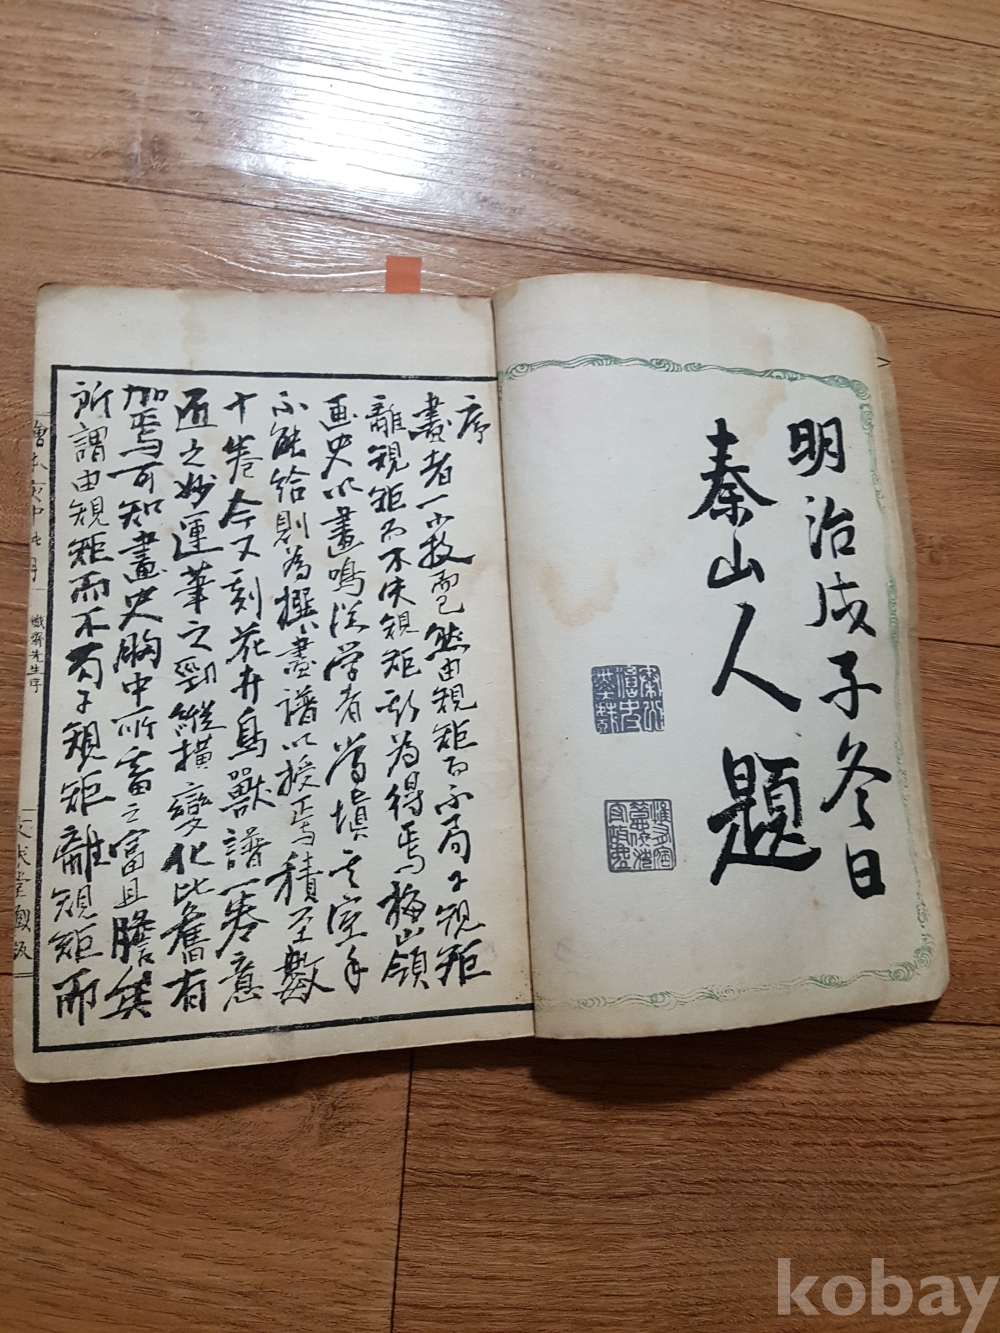 明治戊子冬日
秦山人題
序
畫者一小技而已然由規矩而不局于規矩
離規矩而不失規矩斯為得焉梅嶺
画史以畫鳴從学者常填其室手
不能給則為撰畫譜以授焉積至數
十卷今又刻花卉鳥獸譜一卷意
匠之妙運筆之勁縱横變化比舊有
加焉可知畫史胸中所畜之富且贍矣
所謂由規矩而不局于規矩離規矩而
先生序
kobay